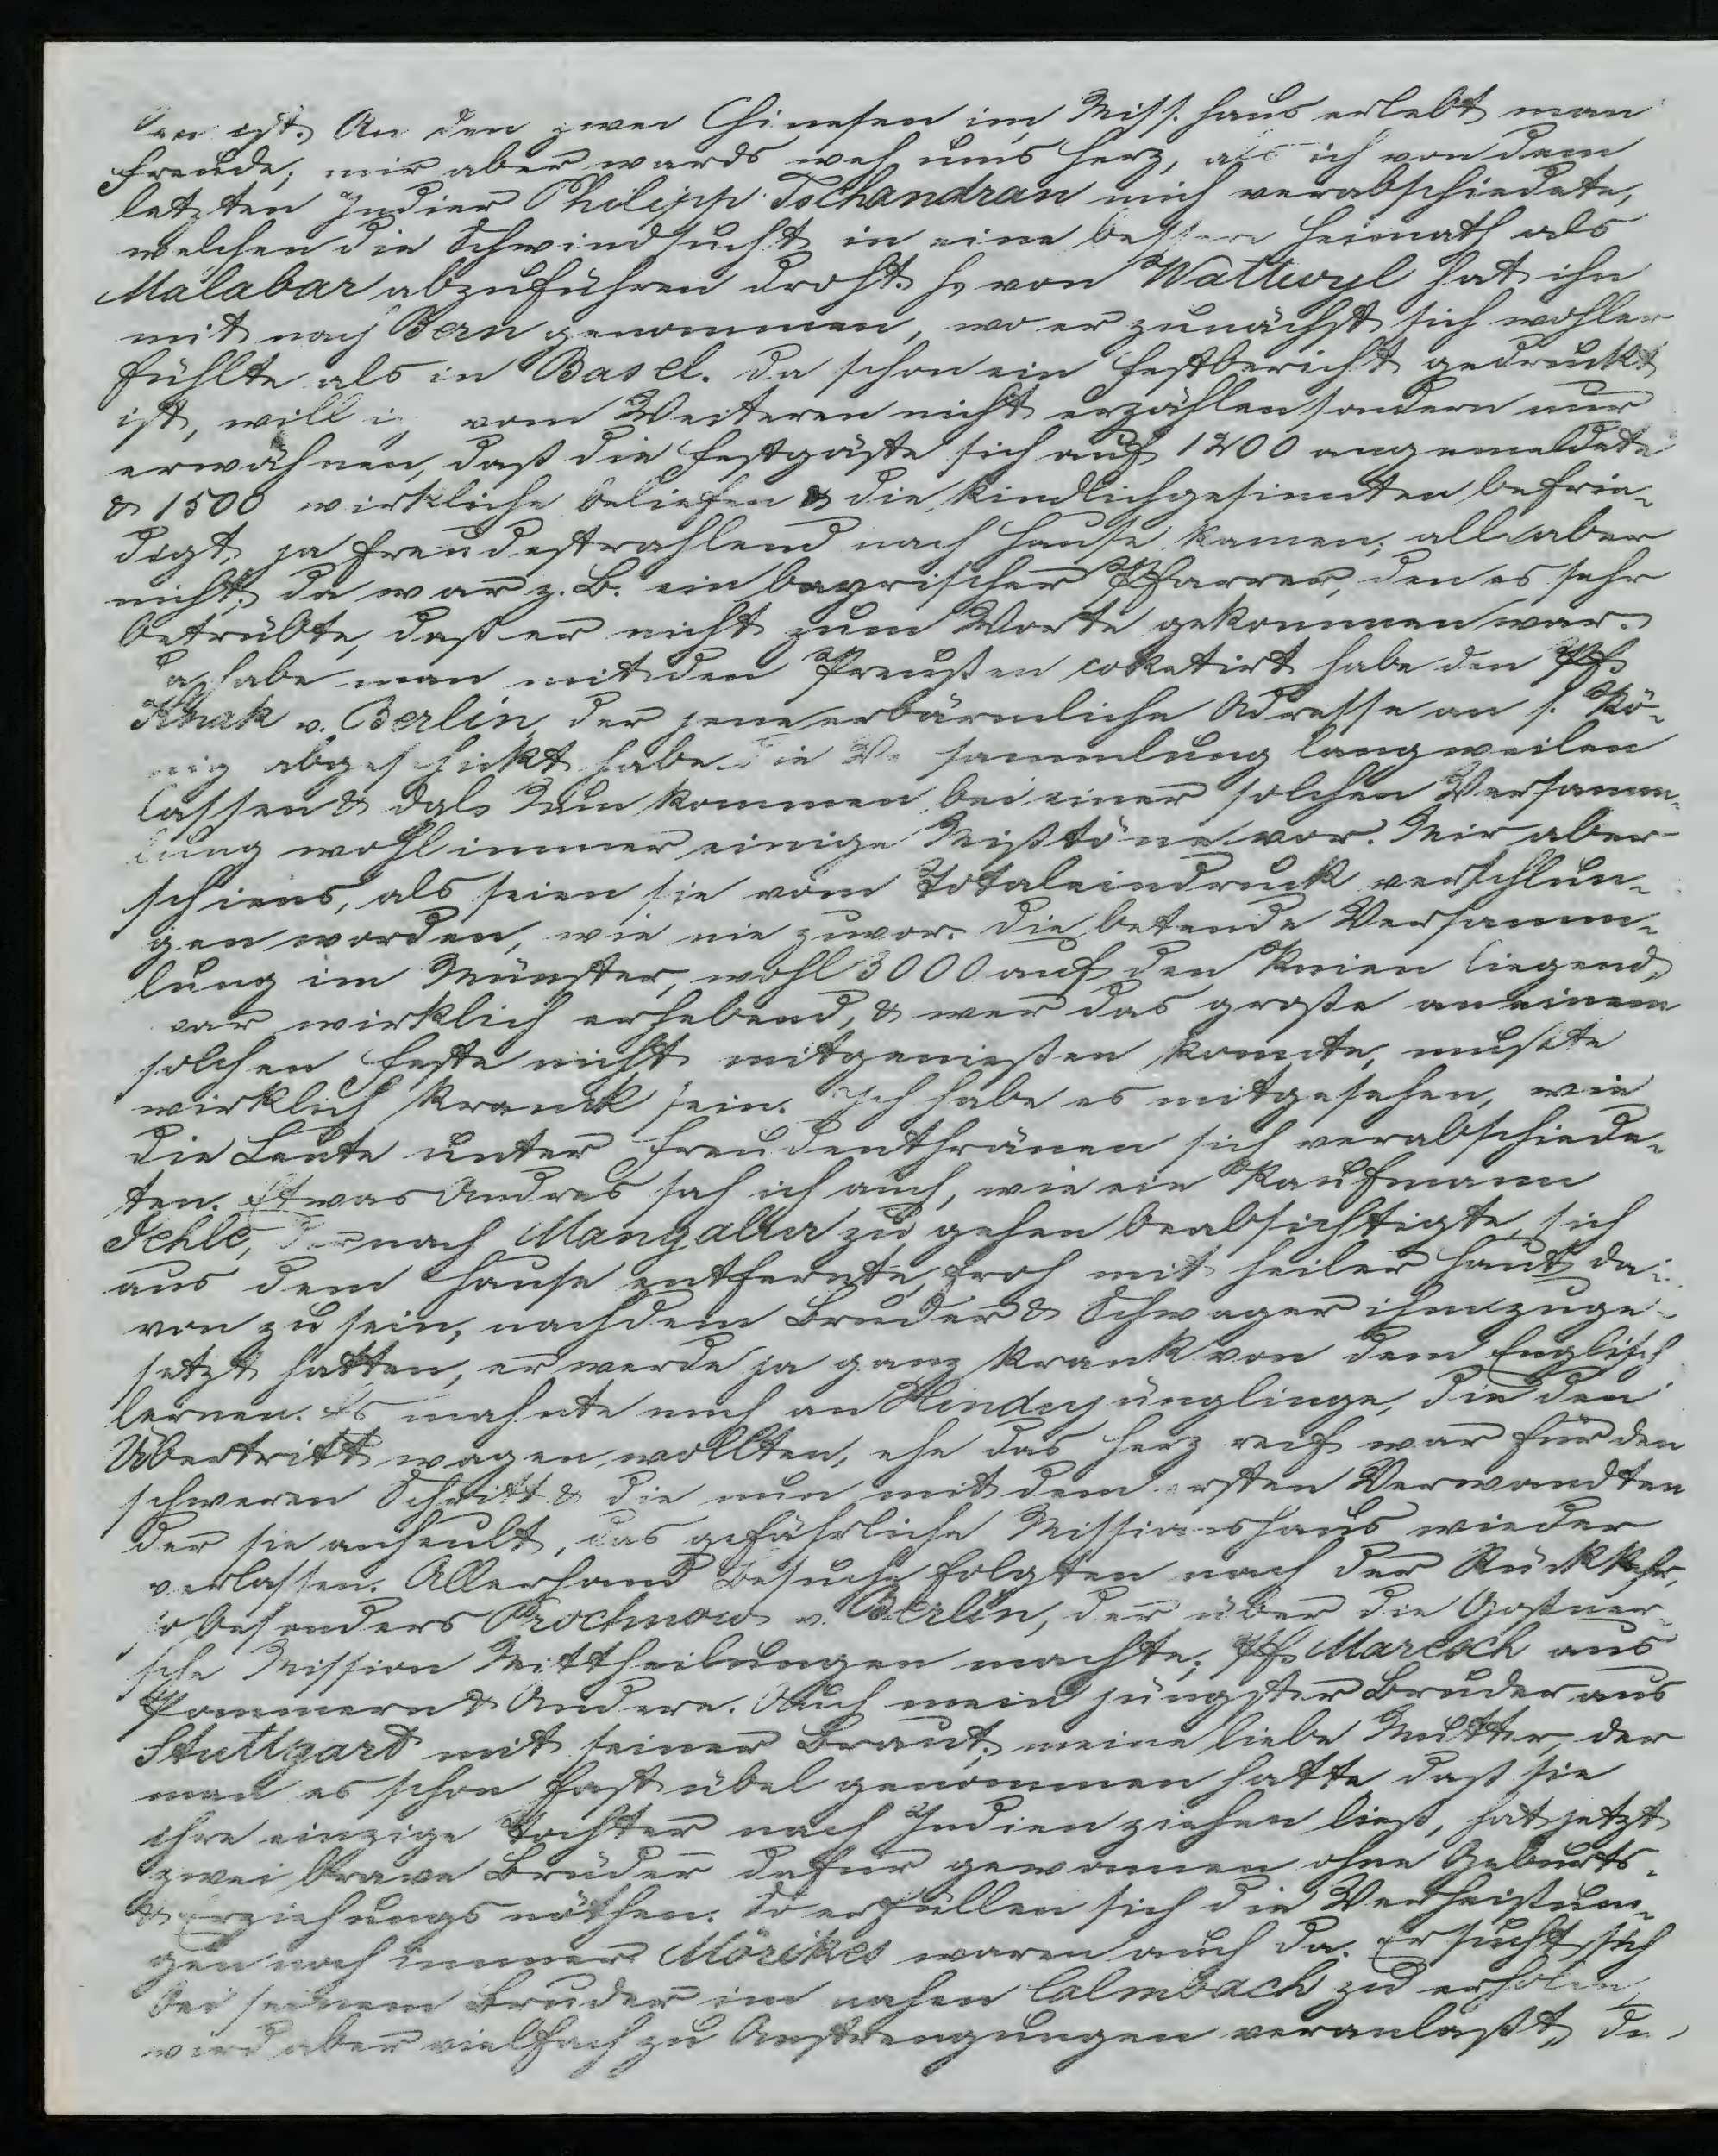 ist. An den zwei Chinesen im Miss. haus erlebt man
Freude; mir aber wards weh ums Herz, als ich von dem
letzten Indier Philipp Tschandran mich verabschiedete,
welchen die Schwindsucht in eine bessere Heimath als
Malabar abzuführen droht. H. von Wattwyl hat ihn
mit nach Bern genommen, wo er zunächst sich wohler
fühlte als in Basel. Da schon ein Festbericht gedruckt
ist, will ich vom Weiteren nicht erzählen sondern nur
erwähnen, daß die Festgäste sich auf 1200 angemeldete
& 1500 wirkliche beliefen & die kindlichgesinnten befrie-
digt, ja freudestrahlend nach Hause kamen; alle aber
nicht; da war z. B. ein bayrischer Pfarrer, den es sehr
betrübte, daß er nicht zum Worte gekommen war.
Da habe man mit den Preußen coketirt habe den Pf.
Knak v. Berlin der jene erbärmliche Adresse an s. Kö-
nig abgeschickt habe die Versammlung langweilen
lassen & dgl. Nun kommen bei einer solchen Versamm-
lung wohl immer einige Mißtöne vor. Mir aber
schiens, als seien sie vom Totaleindruck verschlun-
gen worden, wie nie zuvor. Die betende Versamm-
lung im Münster, wohl 3000 auf den Knien liegend,
war wirklich erhebend, & wer das große an einem
solchen Feste nicht mitgenießen konnte, mußte
wirklich krank sein. Ich habe es mitgesehen, wie
die Leute unter Freudenthränen sich verabschiede-
ten. Etwas Andres sah ich auch, wie ein Kaufmann
Jehle, der nach Mangalur zu gehen beabsichtigte, sich
aus dem Hause entfernte, froh mit heiler Haut da-
von zu sein, nachdem Bruder & Schwager ihm zuge-
setzt hatten, er werde ja ganz krank von dem Englisch
lernen. Es mahnte mich an Hindujünglinge, die den
Übertritt wagen wollten, ehe das Herz reif war für den
schweren Schritt & die nun mit dem ersten Verwandten
der sie anheult, das gefährliche Missionshaus wieder
verlassen. Allerhand Besuche folgten nach der Rückkehr,
so besonders Prochnow v. Berlin, der über die Goßner-
sche Mission Mittheilungen machte; Pf. aus
Pommern & Andere. Auch mein jüngster Bruder aus
Stuttgard mit seiner Braut; meine liebe Mutter, der
man es schon fast übel genommen hatte daß sie
ihre einzige Tochter nach Indien ziehen ließ, hat jetzt
zwei brave Brüder dafür gewonnen ohne Geburts-
& Erziehungsnöthen. So erfüllen sich die Verheißun-
gen noch immer. Mörikes waren auch da. Er sucht sich
bei seinem Bruder im nahen Calmbach zu erholen,
wird aber vielfach zu Anstrengungen veranlaßt, die